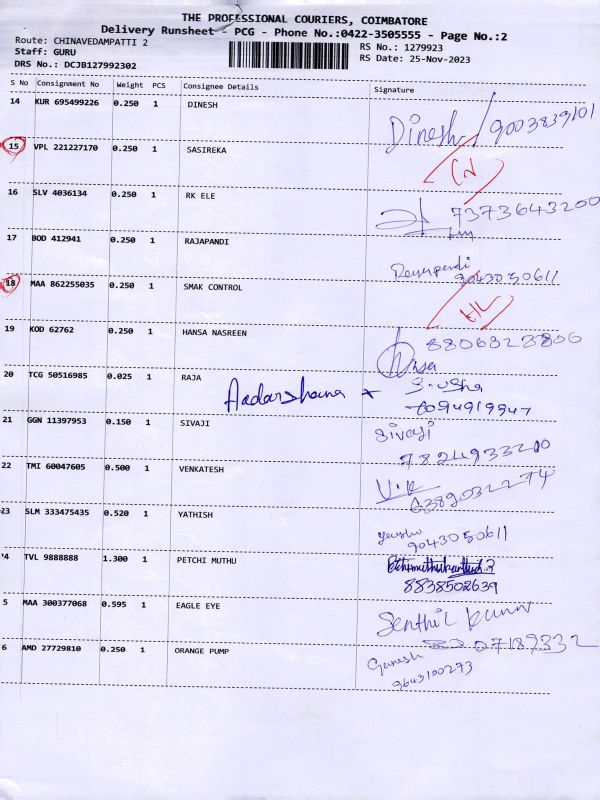 THE PROFESSIONAL COURIERS, COIMBATORE
Delivery Runsheet - PCG - Phone No.:0422-3505555 - Page No.:2
Route: CHINAVEDAMPATTI 2
RS No.: 1279923
Staff: GURU
RS Date: 25-Nov-2023
DRS No.: DCJB127992302
S No Consignment No Weight PCS Consignee Details Signature
14 KUR 695499226 0.250 1 DINESH
Dinesh / 9003839101
15 VPL 221227170 0.250 1 SASIREKA
16 SLV 4036134 0.250 1 RK ELE
7373643200
17 BOD 412941 0.250 1 RAJAPANDI
9043050611
18 MAA 862255035 0.250 1 SMAK CONTROL
19 KOD 62762 0.250 1 HANSA NASREEN
8806323806
20 TCG 50516985 0.025 1 RAJA
21 GGN 11397953 0.150 1 SIVAJI
Sivaji
22 TMI 60047605 0.500 1 VENKATESH
V.K
23 SLM 333475435 0.520 1 YATHISH
9043050611
4 TVL 9888888 1.300 1 PETCHI MUTHU
8838502639
5 MAA 300377068 0.595 1 EAGLE EYE
Senthil Kumar
07189332
6 AMD 27729810 0.250 1 ORANGE PUMP
Ganesh
9643100273